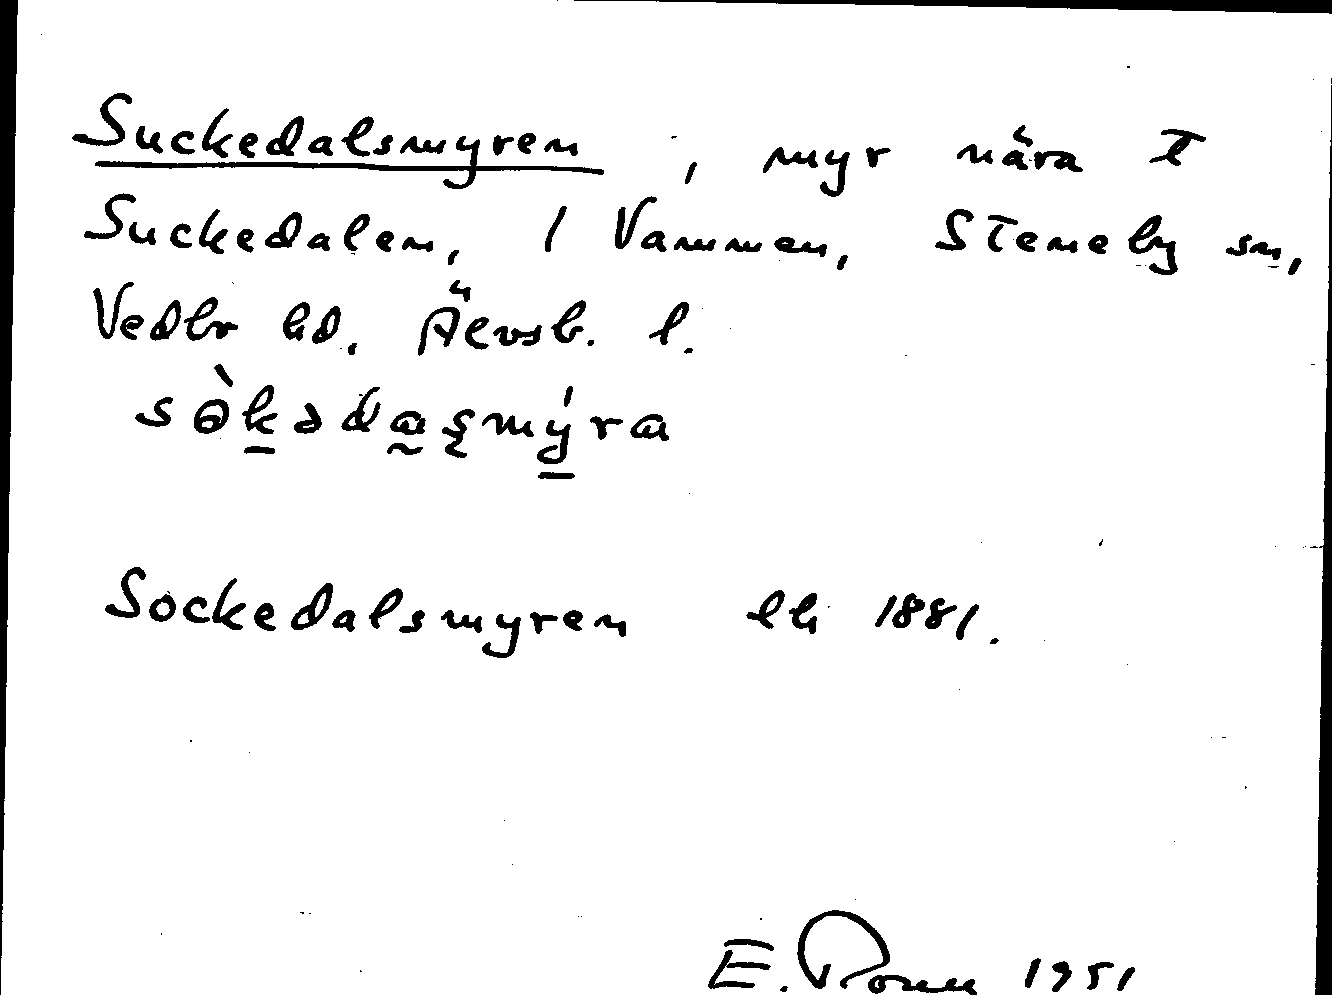 Suckedalsmyren, myr nära t
Suckedalen, 1 Vammen, Steneby sn,
Vedbr hd, Älvsb. l.
sɵ̀k̠əda̰ʂmý̠ra
Sockedalsmyren lh 1881.
E. 1951